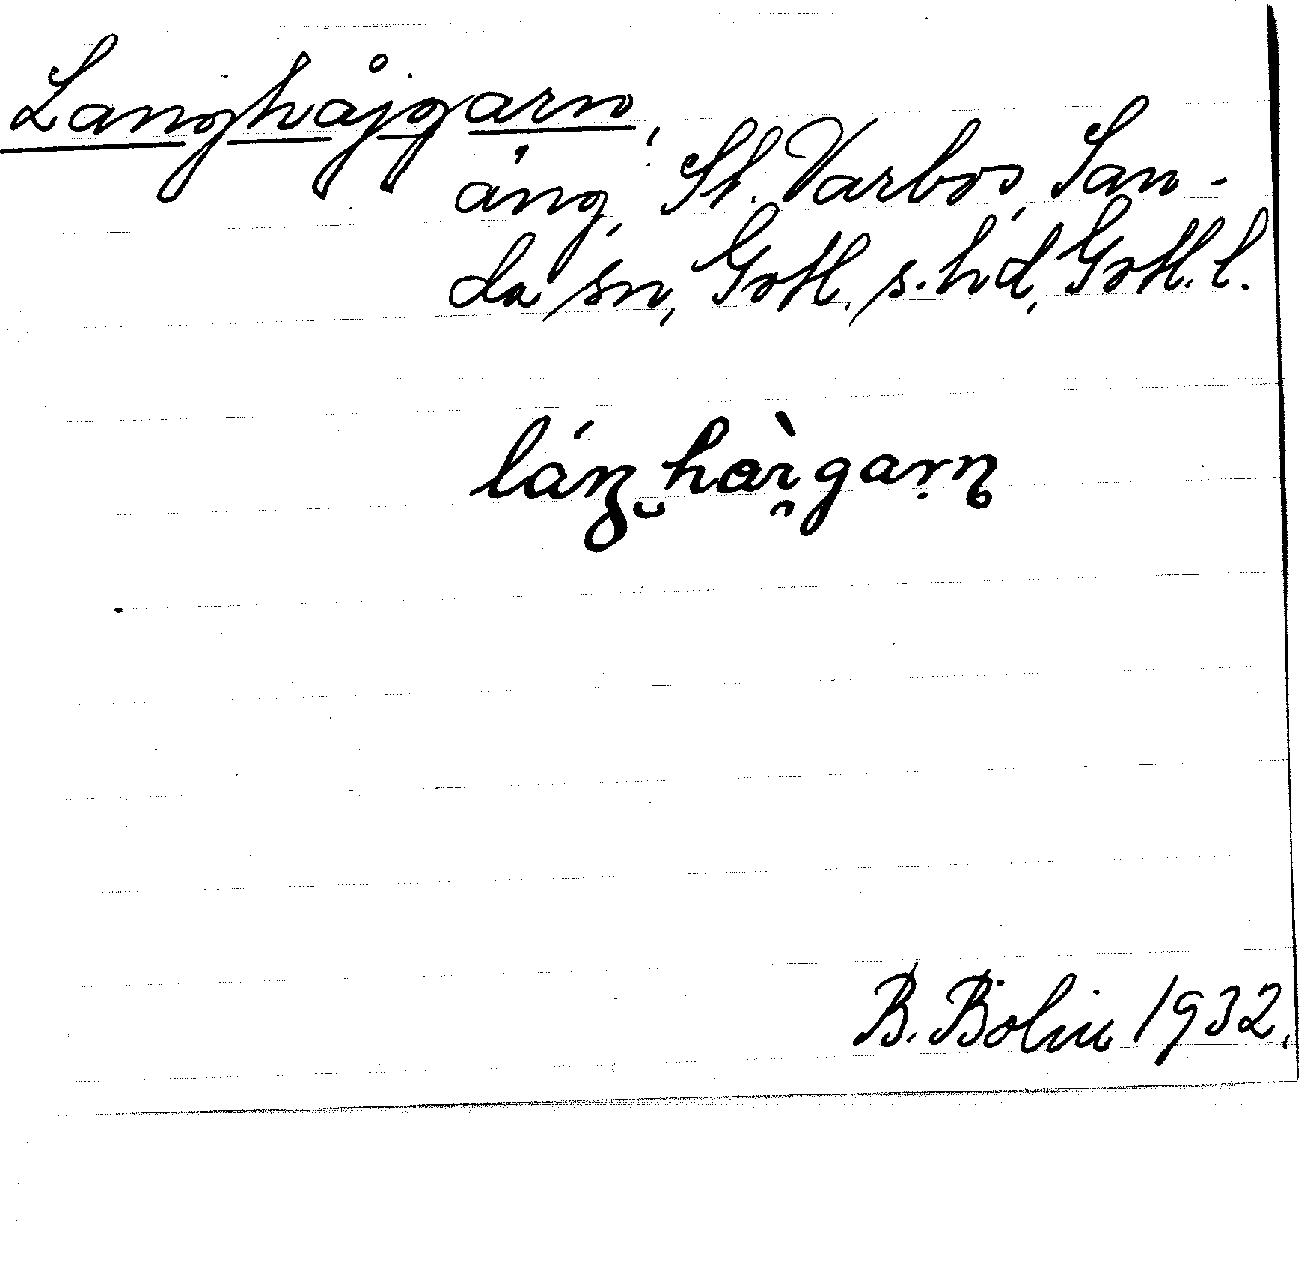 Langhåjgarn,
äng, St. Varbos, San-
da sn, Gotl. s. hd, Gotl. l.
B. Bolin 1932.